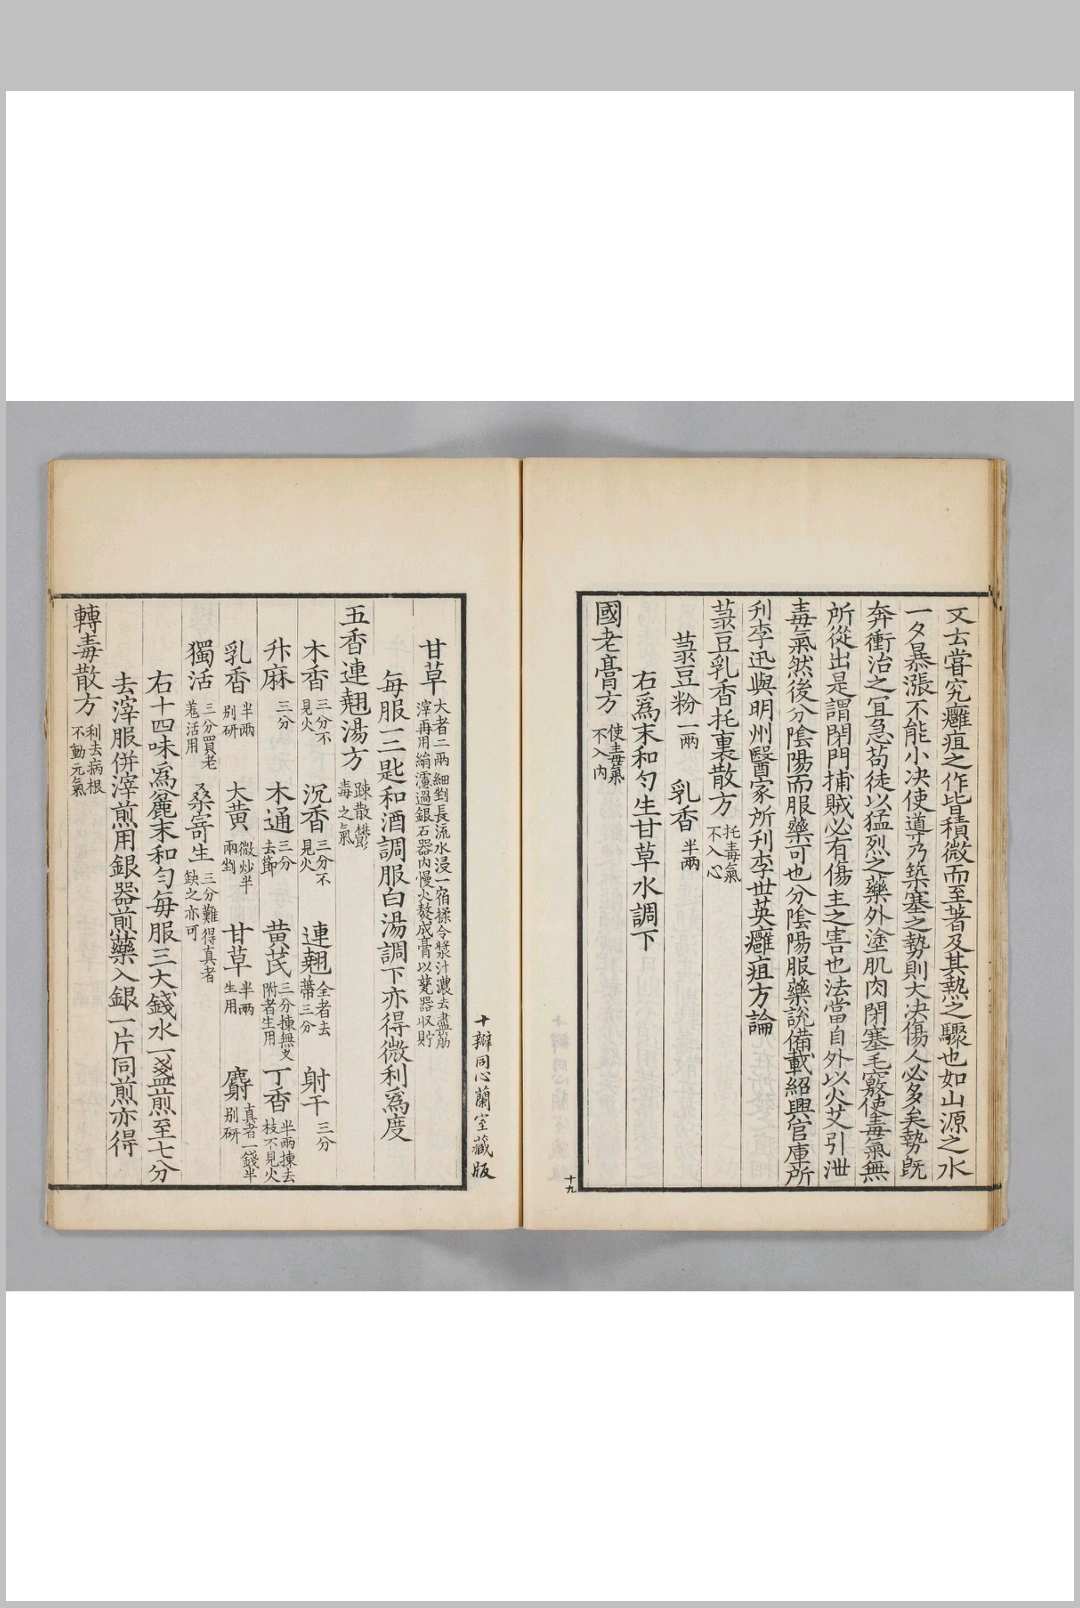 又云嘗究癰疽之作皆積微而至著及其熱之驟也如山源之水
一夕暴漲不能小决使導乃築塞之勢則大决傷人必多矣勢旣
奔衝治之冝急苟徒以猛烈之藥外塗肌肉閉塞毛竅使毒氣無
所從出是謂閉門捕賊必有傷主之害也法當自外以火艾引泄
毒氣然後分隂陽而服藥可也分隂陽服藥說備載紹興官庫所
刋李迅與明州醫家所刋李世英癰疽方論
菉豆乳香托裏散方 托毒氣
不入心
菉豆粉 一兩 乳香 半兩
右爲末和勻生甘草水調下
國老膏方 使毒氣
不入内
十九
十瓣同心蘭室藏版
甘草 大者二兩細剉長流水浸一宿揉令漿汁濃去盡筋
滓再用絹濾過銀石器内慢火熬成膏以甆器収貯
每服一二匙和酒調服白湯調下亦得微利爲度
五香連翹湯方 踈散欝
毒之氣
木香 三分不
見火 沉香 三分不
見火 連翹 全者去
蔕三分 射干 三分
升麻 三分 木通 三分
去節 黄芪 三分揀無叉
附者生用 丁香 半兩揀去
枝不見火
乳香 半兩
别研 大黄 微炒半
兩剉 甘草 半兩
生用 麝 真者一錢半
别研
獨活 三分買老
羗活用 桑寄生 三分難得真者
缺之亦可
右十四味爲麄末和勻每服三大錢水一盞煎至七分
去滓服併滓煎用銀器煎藥入銀一片同煎亦得
轉毒散方 利去病根
不動元氣